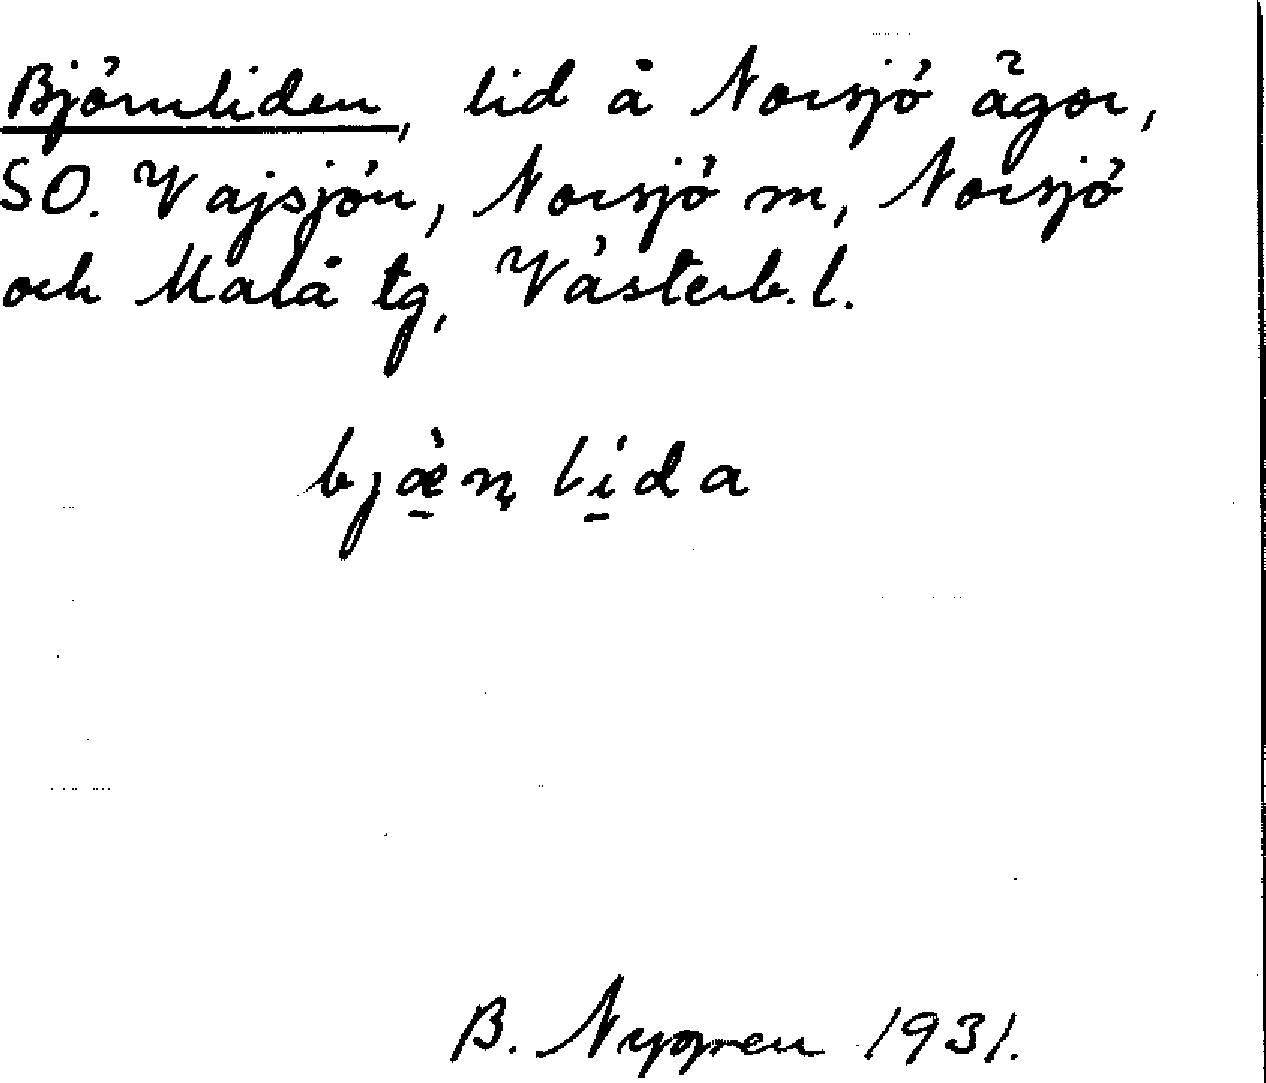 Björnliden, lid å Norsjö ägor,
SO. Vajsjön, Norsjö m, Norsjö
och Malå tg, Västerb. l.
bjæ̠̀ṇ li̠´da
B. Nygren 1931.